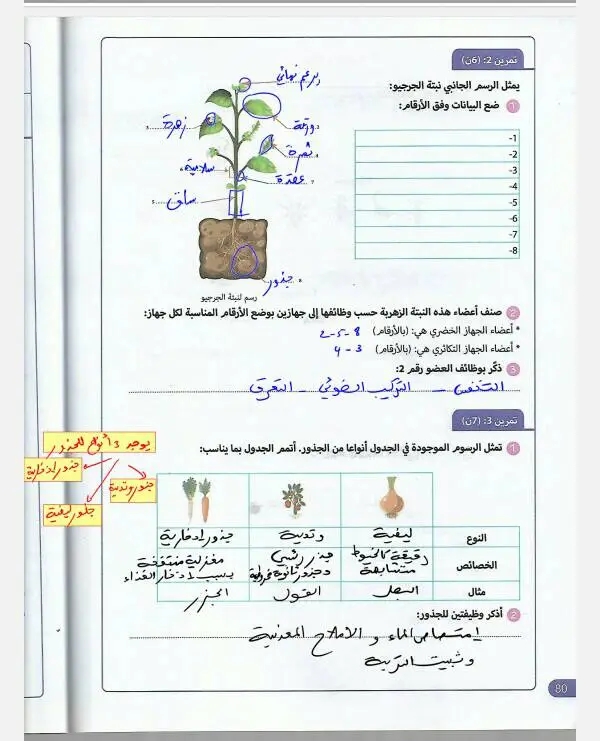 تمرين 2: (6ن)
يمثل الرسم الجانبي نبتة الجرجير:
1 ضع البيانات وفق الأرقام:
برعم نهائي
ورقة
زهرة
ثمرة
سلامية
عقدة
ساق
جذور
1-
2-
3-
4-
5-
6-
7-
8-
رسم لنبتة الجرجير
2 صنف أعضاء هذه النبتة الزهرية حسب وظائفها إلى جهازين بوضع الأرقام المناسبة لكل جهاز:
* أعضاء الجهاز الخضري هي: (بالأرقام) 8-5-2
* أعضاء الجهاز التكاثري هي: (بالأرقام) 3-4
3 ذكّر بوظائف العضو رقم 2:
التنفس - التركيب الضوئي - التعرق
تمرين 3: (7ن)
1 تمثل الرسوم الموجودة في الجدول أنواعا من الجذور. أتمم الجدول بما يناسب:
يوجد 3 أنواع للجذور
جذور إدخارية
جذور وتدية
جذور ليفية
النوع ليفية وتدية جذور إدخارية
الخصائص دقيقة كالخيوط متشابهة جذر رئيسي وجذور ثانوية مغزلية منتفخة بسبب ادخار الغذاء
مثال البصل الفول الجزر
2 أذكر وظيفتين للجذور:
امتصاص الماء و الاملاح المعدنية
و تثبيت التربة
80